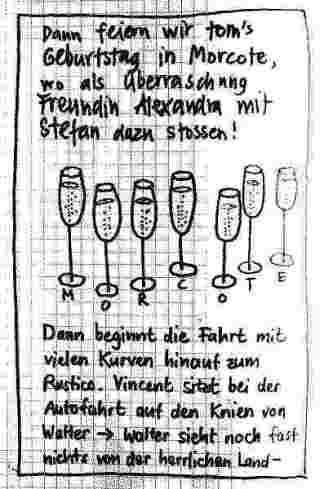 Dann feiern wir tom's
Geburtstag in Morcote,
wo als Überraschung
Freundin Alexandra mit
Stefan dazu stossen!
M O R C O T E
Dann beginnt die Fahrt mit
vielen Kurven hinauf zum
Rustico. Vincent sitzt bei der
Autofahrt auf den Knien von
Walter → Walter sieht noch fast
nichts von der herrlichen Land-